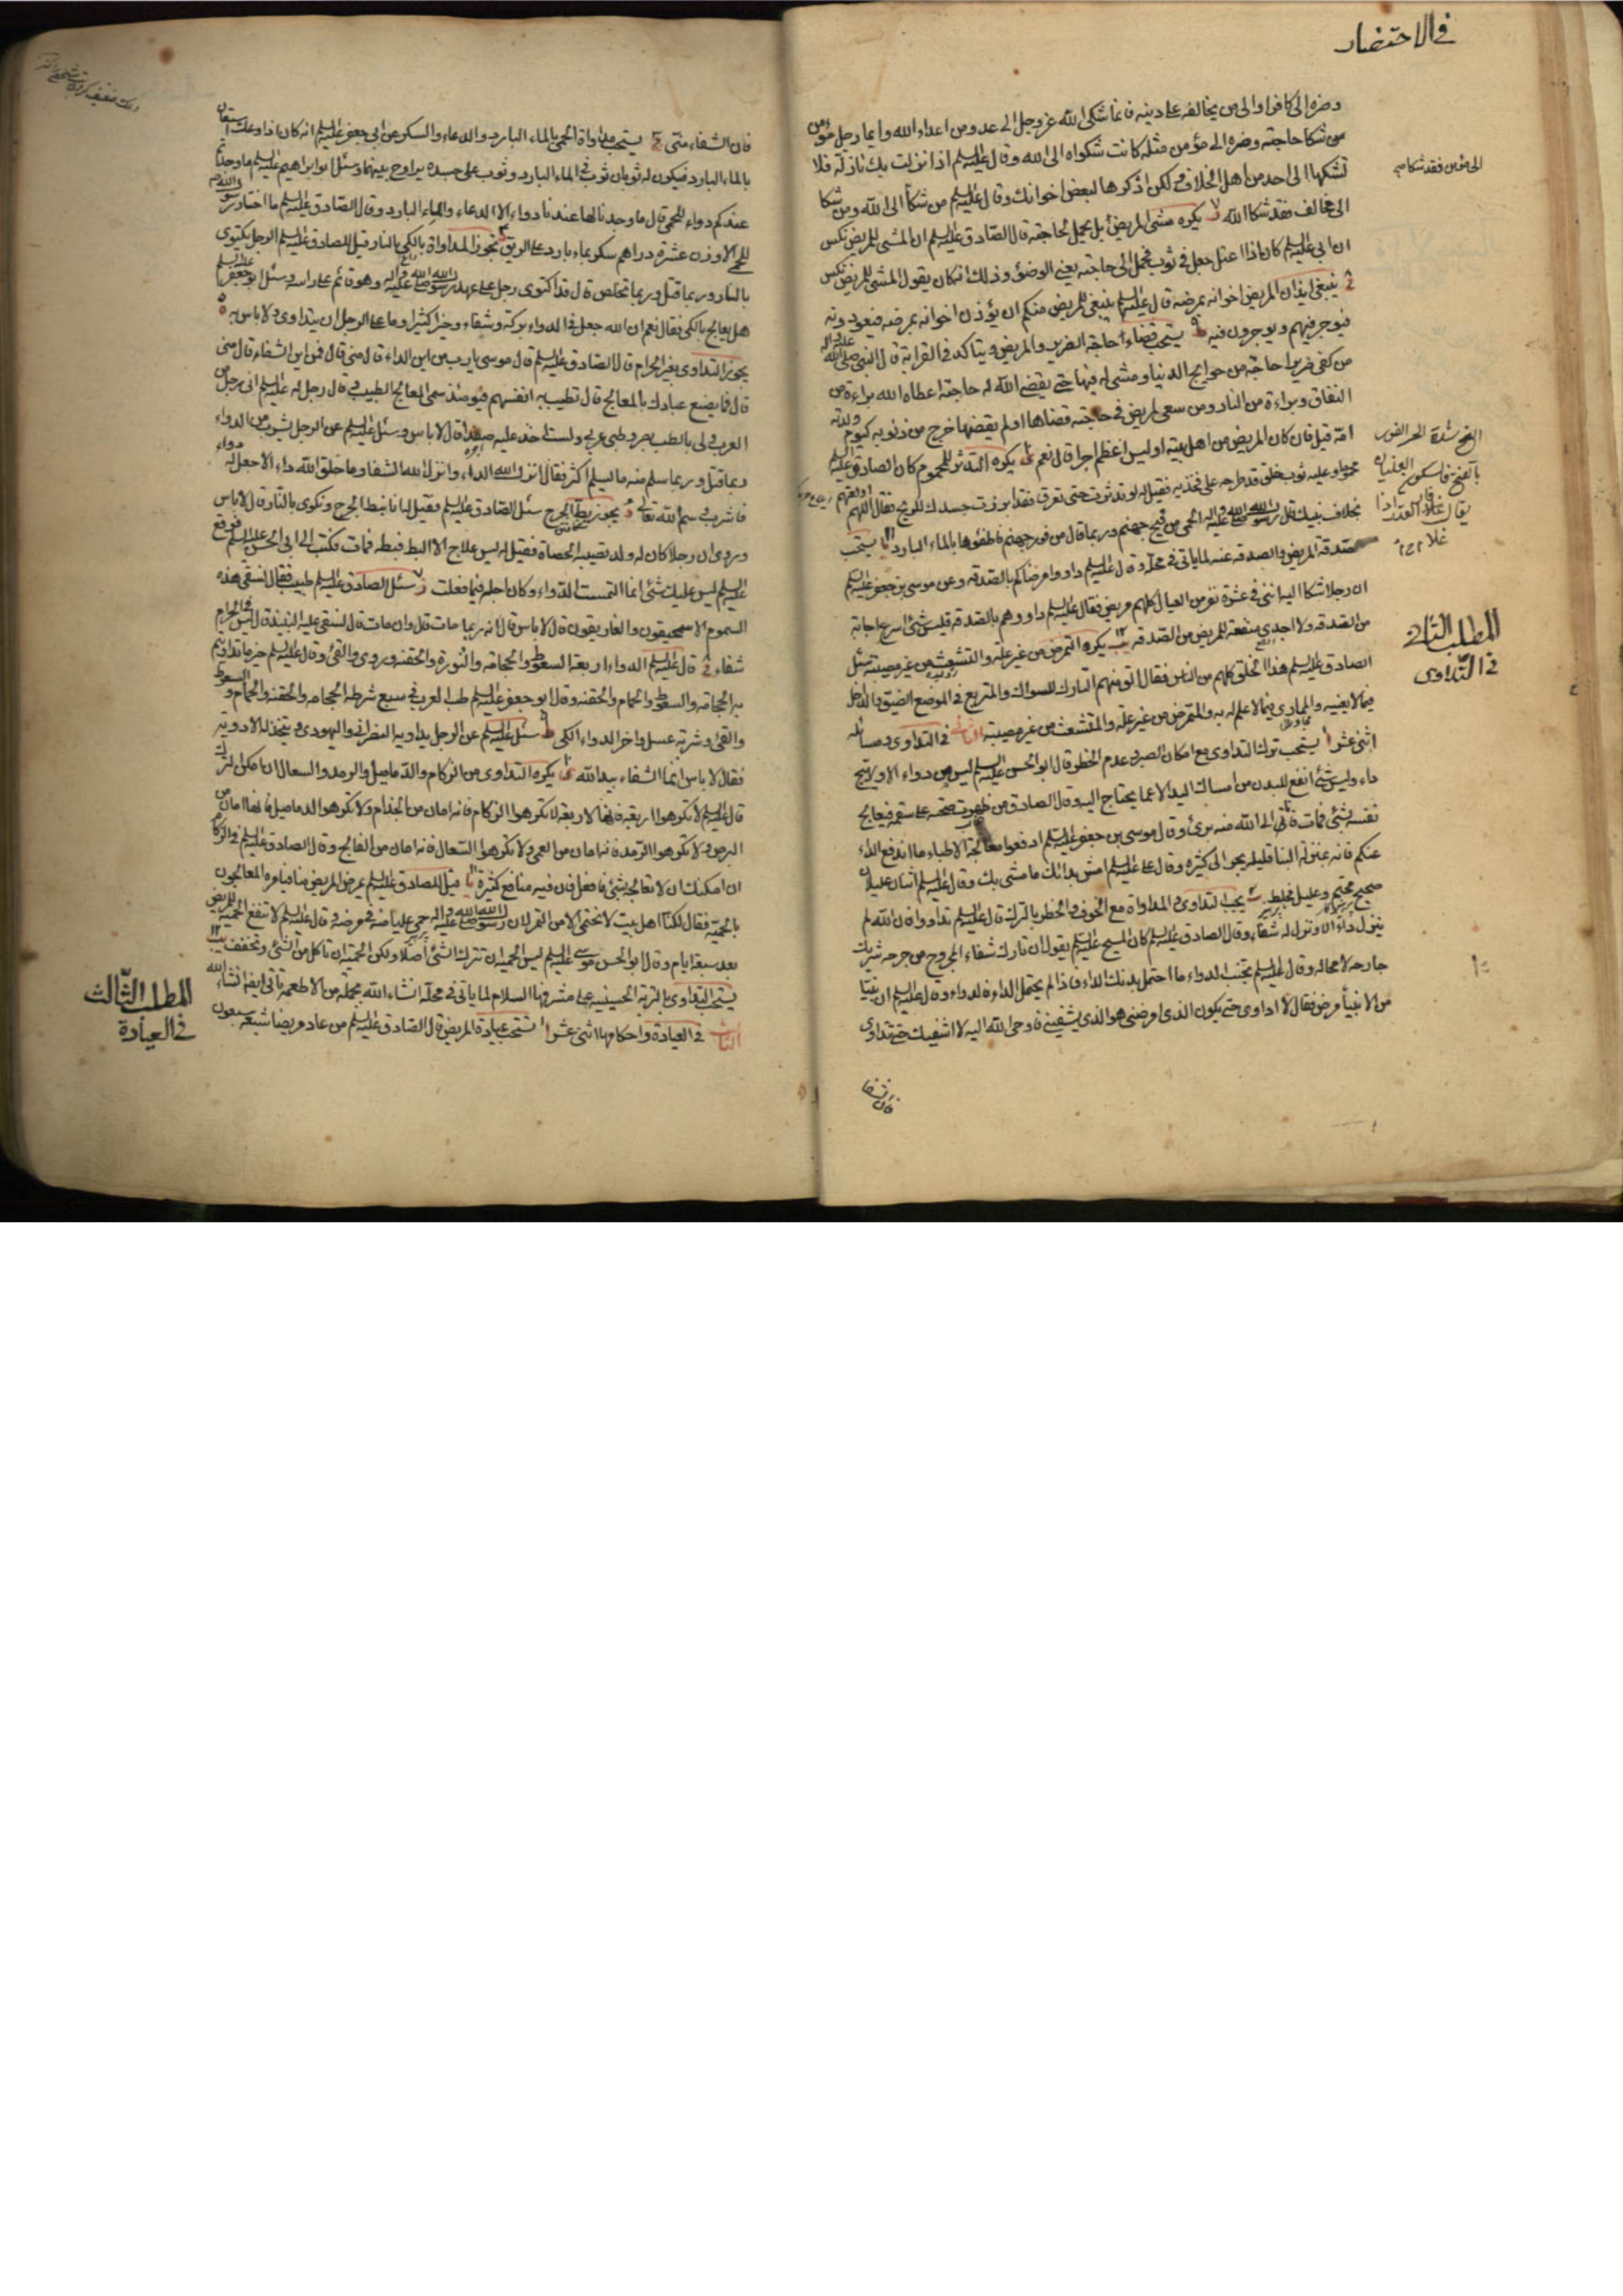 في الاحتضار
وضره الى كافر او الى من يخالفه على دينه فانما شكى الله عز وجل الى عدو من اعداء الله وايما رجل مؤمن
شكا حاجته وضره الى مؤمن مثله كانت شكواه الى الله وقال عليه السلم اذا نزلت بك نازلة فلا
تشكها الى احد من اهل الخلاف ولكن اذكرها لبعض اخوانك وقال عليه السلم من شكا الى الله ومن شكا
الى مؤمن فقد شكا
الى مخالف فقد شكا الله يكره مشى المريض بل يحمل لحاجته قال الصادق عليه السلم ان المشى للمريض نكس
ان ابي عليه السلم كان اذا اعتل جعل في ثوب فحمل الى حاجته يعنى الوضوء وذلك انه كان يقول المشى للمريض نكس
ينبغى ايذان المريض اخوانه بمرضه قال عليه السلم ينبغى للمريض منكم ان يؤذن اخوانه بمرضه فيعودونه
فيوجر فيهم ويوجرون فيه يستحب قضاء حاجة الضرير والمريض ويتاكد في القرابة قال النبي صلى الله عليه واله
من كفى ضريرا حاجة من حوايج الدنيا ومشى له فيها حتى يقضى الله له حاجته اعطاه الله براءة من
النفاق وبراءة من النار ومن سعى لمريض في حاجته قضاها او لم يقضها خرج من ذنوبه كيوم ولدته
امه قيل فان كان المريض من اهل بيته اوليس اعظم اجرا قال نعم يكره التدثر للمحموم كان الصادق عليه السلم
محموا وعليه ثوب خلق قد طرحه على فخذيه فقيل له لو تدثرت حتى تعرق فقد ابرزت جسدك للريح فقال اللهم
بخلاف نبيك قال رسول الله صلى الله عليه واله الحمى من فيح جهنم وربما قال من فور جهنم فاطفؤها بالماء البارد يستحب
صدقة المريض والصدقة عنه لما ياتى في محله وقال عليه السلم داووا مرضاكم بالصدقة وعن موسى بن جعفر عليه السلم
ان رجلا شكا اليه اننى في عشرة نفر من العيال كلهم مريض فقال عليه السلم داووهم بالصدقة فليس شئ اسرع اجابة
من الصدقة ولا اجدى منفعة للمريض من الصدقة يكره التمرض من غير علة والتشعث من غير مصيبة سئل
الصادق عليه السلم هذا الخلق كلهم من الناس فقال الق منهم التارك للسواك والمتربع في الموضع الضيق والداخل
فيما لا يعنيه والممارى فيما لا علم له به والمتمرض من غير علة والمتشعث من غير مصيبة الثانى في التداوى ومسائله
المطلب الثانى
في التداوى
اثنى عشر يستحب ترك التداوى مع امكان الصبر وعدم الخطر قال ابو الحسن عليه السلم ليس من دواء الا ويهيج
داء وليس شئ انفع للبدن من امساك اليد الا عما يحتاج اليه وقال الصادق من ظهرت صحته على سقمه فيعالج
نفسه بشئ فمات فانى الى الله منه برئ وقال موسى بن جعفر عليه السلم ادفعوا معالجة الاطباء ما اندفع الداء
عنكم فانه بمنزلة البنا قليله يجر الى كثيره وقال على عليه السلم امش بدائك ما مشى بك وقال عليه السلم اثنان عليلان
صحيح محتم وعليل مخلط يجب التداوى والمداواة مع الخوف والخطر بالترك قال عليه السلم تداووا فان الله لم
ينزل داء الا ونزل له شفاء وقال الصادق عليه السلم كان المسيح عليه السلم يقول ان تارك شفاء المجروح من جرحه شريك
جارحه لا محالة وقال عليه السلم تجنب الدواء ما احتمل بدنك الداء فاذا لم يحتمل الداء فالدواء وقال عليه السلم ان نبيا
من الانبياء مرض فقال لا اداوى حتى يكون الذى امرضنى هو الذى يشفينى فاوحى الله اليه لا اشفيك حتى تتداوى
فان الشفا
فان الشفاء منى يستحب مداواة الحمى بالماء البارد والدعاء والسكر عن ابي جعفر عليه السلم انه كان اذا وعك استعان
بالماء البارد فيكون له ثوبان ثوب في الماء البارد وثوب على جسده يراوح بينهما وسئل ابو ابراهيم عليه السلم ما وجدتم
عندكم دواء للحمى قال ما وجدنا لها عندنا دواء الا الدعاء والماء البارد وقال الصادق عليه السلم ما اختار رسول الله
للحمى الا وزن عشرة دراهم سكر بماء بارد على الريق تجوز المداواة بالكى بالنار قيل للصادق عليه السلم الرجل يكتوى
بالنار وربما قتل وربما تخلص قال قد اكتوى رجل على عهد رسول الله صلى الله عليه واله وهو قائم على راسه وسئل ابو جعفر عليه السلم
هل يعالج بالكى فقال نعم ان الله جعل في الدواء بركة وشفاء وخيرا كثيرا وما على الرجل ان يتداوى ولا باس به
يجوز التداوى بغير الحرام قال الصادق عليه السلم قال موسى يا رب من اين الداء قال منى قال فمن اين الشفاء قال منى
قال فما يصنع عبادك بالمعالج قال تطيب به انفسهم فيومئذ سمى المعالج الطبيب وقال رجل له عليه السلم انى رجل من
العرب ولى بالطب بصر وطبى عربى ولست اخذ عليه صفدا قال لا باس وسئل عليه السلم عن الرجل يشرب من الدواء
وربما قتل وربما سلم منه ما يسلم اكثر فقال انزل الله الداء وانزل الله الشفا وما خلق الله داء الا جعل له دواء
فاشرب وسم الله تعالى يجوز بط الجرح سئل الصادق عليه السلم فقيل له انا نبط الجرح ونكوى بالنار قال لا باس
وروى ان رجلا كان له ولد تصيبه الحصاة فقيل له ليس علاج الا البط فبطه فمات فكتب الى ابي الحسن عليه السلم فوقع
عليه السلم ليس عليك شئ انما التمست الدواء وكان اجله فيما فعلت سئل الصادق عليه السلم طبيب فقال نسقى هذه
السموم الاسمحيقون والغاريقون قال لا باس قال انه ربما مات قال وان مات قال نسقى عليه النبيذ قال ليس في الحرام
شفاء قال عليه السلم الدواء اربعة السعوط والحجامة والنورة والحقنة وروى والقئ وقال عليه السلم خير ما تداويتم
به الحجامة والسعوط والحمام والحقنة وقال ابو جعفر عليه السلم طب العرب في سبع شرطة الحجامة والحقنة والحمام والسعوط
والقئ وشربة عسل واخر الدواء الكى سئل عليه السلم عن الرجل يداويه النصرانى واليهودى ويتخذ له الادوية
فقال لا باس انما الشفاء بيد الله يكره التداوى من الزكام والدماميل والرمد والسعال ان امكن الترك
قال عليه السلم لا تكرهوا اربعة فانها لاربعة لا تكرهوا الزكام فانه امان من الجذام ولا تكرهوا الدماميل فانها امان من
البرص ولا تكرهوا الرمد فانه امان من العمى ولا تكرهوا السعال فانه امان من الفالج وقال الصادق عليه السلم في الزكام
ان امكنك ان لا تعالجه بشئ فافعل فان فيه منافع كثيرة قيل للصادق عليه السلم يمرض المريض منا فيامره المعالجون
بالحمية فقال لكنا اهل بيت لا نحتمى الا من التمر لان رسول الله صلى الله عليه واله حمى عليا منه في مرضه وقال عليه السلم لا تنفع الحمية للمريض
بعد سبعة ايام وقال ابو الحسن موسى عليه السلم ليس الحمية ان تترك الشئ اصلا ولكن الحمية ان تاكل من الشئ وتخفف
يستحب التداوى بالتربة الحسينية على مشرفها السلام لما ياتى في محله انشاء الله بجملة من الاطعمة تاتى ايضا انشاء الله
الثالث في العيادة واحكامها اثنى عشر تستحب عيادة المريض قال الصادق عليه السلم من عاد مريضا شيعه سبعون
المطلب الثالث
في العيادة